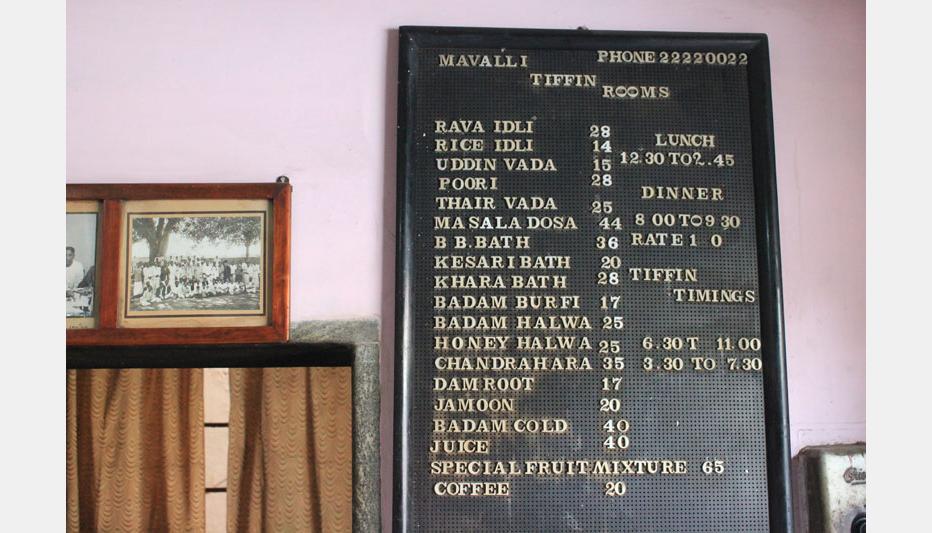 MAVALLI PHONE 22220022
TIFFIN
ROOMS
RAVA IDLI 28
RICE IDLI 14 LUNCH
UDDIN VADA 15 12.30 TO 2.45
POORI 28
THAIR VADA 25 DINNER
MASALA DOSA 44 8 00 TO 9 30
B B.BATH 36 RATE 1 0
KESARI BATH 20
KHARA BATH 28 TIFFIN
BADAM BURFI 17 TIMINGS
BADAM HALWA 25
HONEY HALWA 25 6.30 T 11.00
CHANDRAHARA 35 3.30 TO 7.30
DAMROOT 17
JAMOON 20
BADAM COLD 40
JUICE 40
SPECIAL FRUIT MIXTURE 65
COFFEE 20